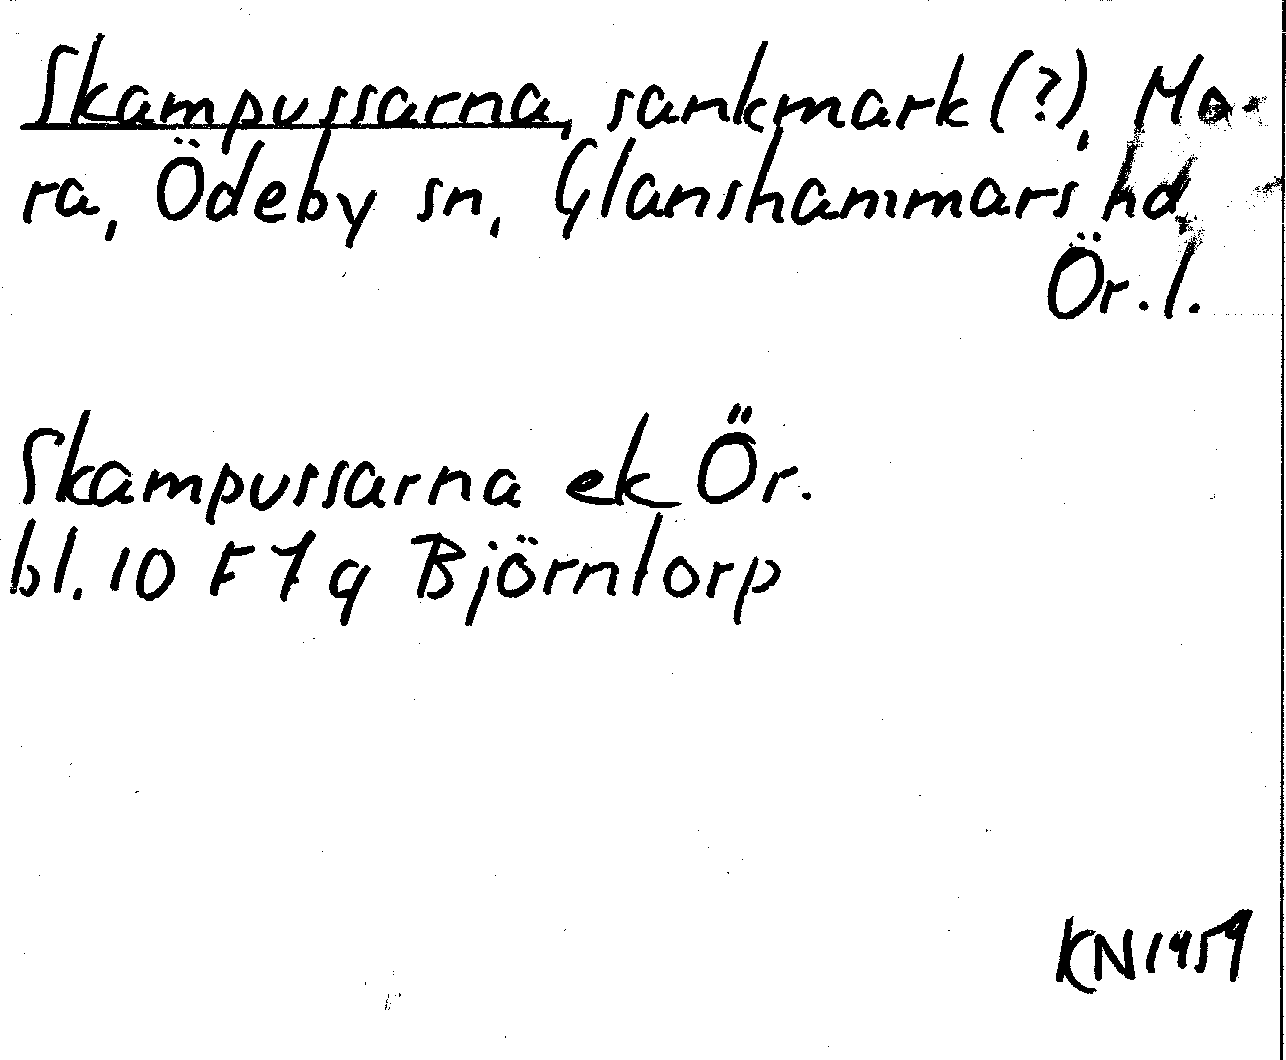 Skampussarna, sankmark (?), Mo-
ra, Ödeby sn, Glanshammars hd,
Ör. l.
Skampussarna ek Ör.
bl. 10 F 7 q Björntorp
KN 1959